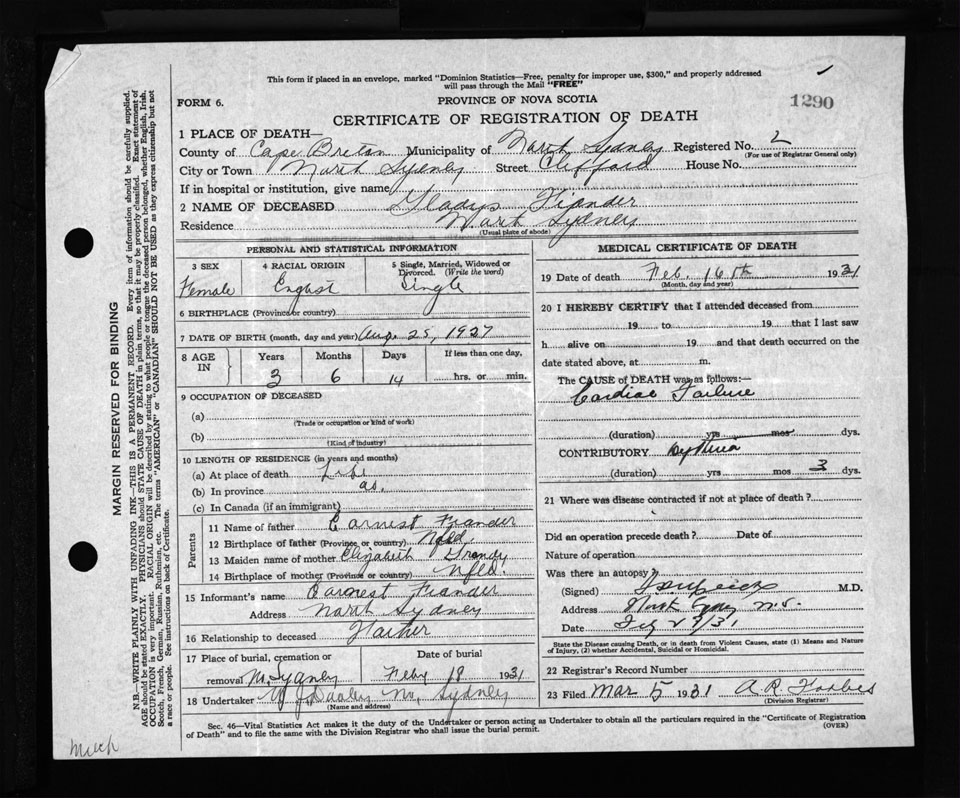 This form if placed in an envelope, marked "Dominion Statistics—Free, penalty for improper use, $300," and properly addressed
will pass through the Mail "FREE"
1290
FORM 6.
PROVINCE OF NOVA SCOTIA
CERTIFICATE OF REGISTRATION OF DEATH
1 PLACE OF DEATH—
County of Cape Breton Municipality of North Sydney Registered No. 2
(For use of Registrar General only)
City or Town North Sydney Street Clifford House No.
If in hospital or institution, give name
2 NAME OF DECEASED Gladys Fiander
Residence North Sydney
(Usual place of abode)
PERSONAL AND STATISTICAL INFORMATION
3 SEX 4 RACIAL ORIGIN 5 Single, Married, Widowed or Divorced. (Write the word)
Female English Single
6 BIRTHPLACE (Province or country)
7 DATE OF BIRTH (month, day and year) Aug 25, 1927
8 AGE IN Years Months Days If less than one day,
3 6 14 hrs. or min.
9 OCCUPATION OF DECEASED
(a)
(Trade or occupation or kind of work)
(b)
(Kind of industry)
10 LENGTH OF RESIDENCE (in years and months)
(a) At place of death Life
(b) In province do.
(c) In Canada (if an immigrant)
Parents
11 Name of father Earnest Fiander
12 Birthplace of father (Province or country) Nfld.
13 Maiden name of mother Elizabeth Grandy
14 Birthplace of mother (Province or country) Nfld.
15 Informant's name Earnest Fiander
Address North Sydney
16 Relationship to deceased Father
17 Place of burial, cremation or removal Date of burial
N. Sydney Feby 18 1931
18 Undertaker W J Dooley N. Sydney
(Name and address)
MEDICAL CERTIFICATE OF DEATH
19 Date of death Feb. 16th 1931
(Month, day and year)
20 I HEREBY CERTIFY that I attended deceased from
19 to 19 that I last saw
h alive on 19 and that death occurred on the
date stated above, at m.
The CAUSE of DEATH was as follows:—
Cardiac Failure
(duration) yrs mos dys.
CONTRIBUTORY
(duration) yrs mos 3 dys.
21 Where was disease contracted if not at place of death?
Did an operation precede death? Date of
Nature of operation
Was there an autopsy?
(Signed) M.D.
Address North Sydney N.S.
Date 31
State the Disease causing Death, or in death from Violent Causes, state (1) Means and Nature
of Injury, (2) whether Accidental, Suicidal or Homicidal.
22 Registrar's Record Number
23 Filed Mar 5 1931 A R Forbes
(Division Registrar)
Sec. 46—Vital Statistics Act makes it the duty of the Undertaker or person acting as Undertaker to obtain all the particulars required in the "Certificate of Registration
of Death" and to file the same with the Division Registrar who shall issue the burial permit.
(OVER)
MARGIN RESERVED FOR BINDING
N.B.—WRITE PLAINLY WITH UNFADING INK—THIS IS A PERMANENT RECORD. Every item of information should be carefully supplied.
AGE should be stated EXACTLY. PHYSICIANS should STATE CAUSE OF DEATH in plain terms, so that it may be properly classified. Exact statement of
OCCUPATION is very important. RACIAL ORIGIN will be described by stating to what people or tongue the deceased person belonged, whether English, Irish,
Scotch, French, German, Russian, Ruthenian, etc. The terms "AMERICAN" or "CANADIAN" SHOULD NOT BE USED as they express citizenship but not
a race or people. See instructions on back of Certificate.